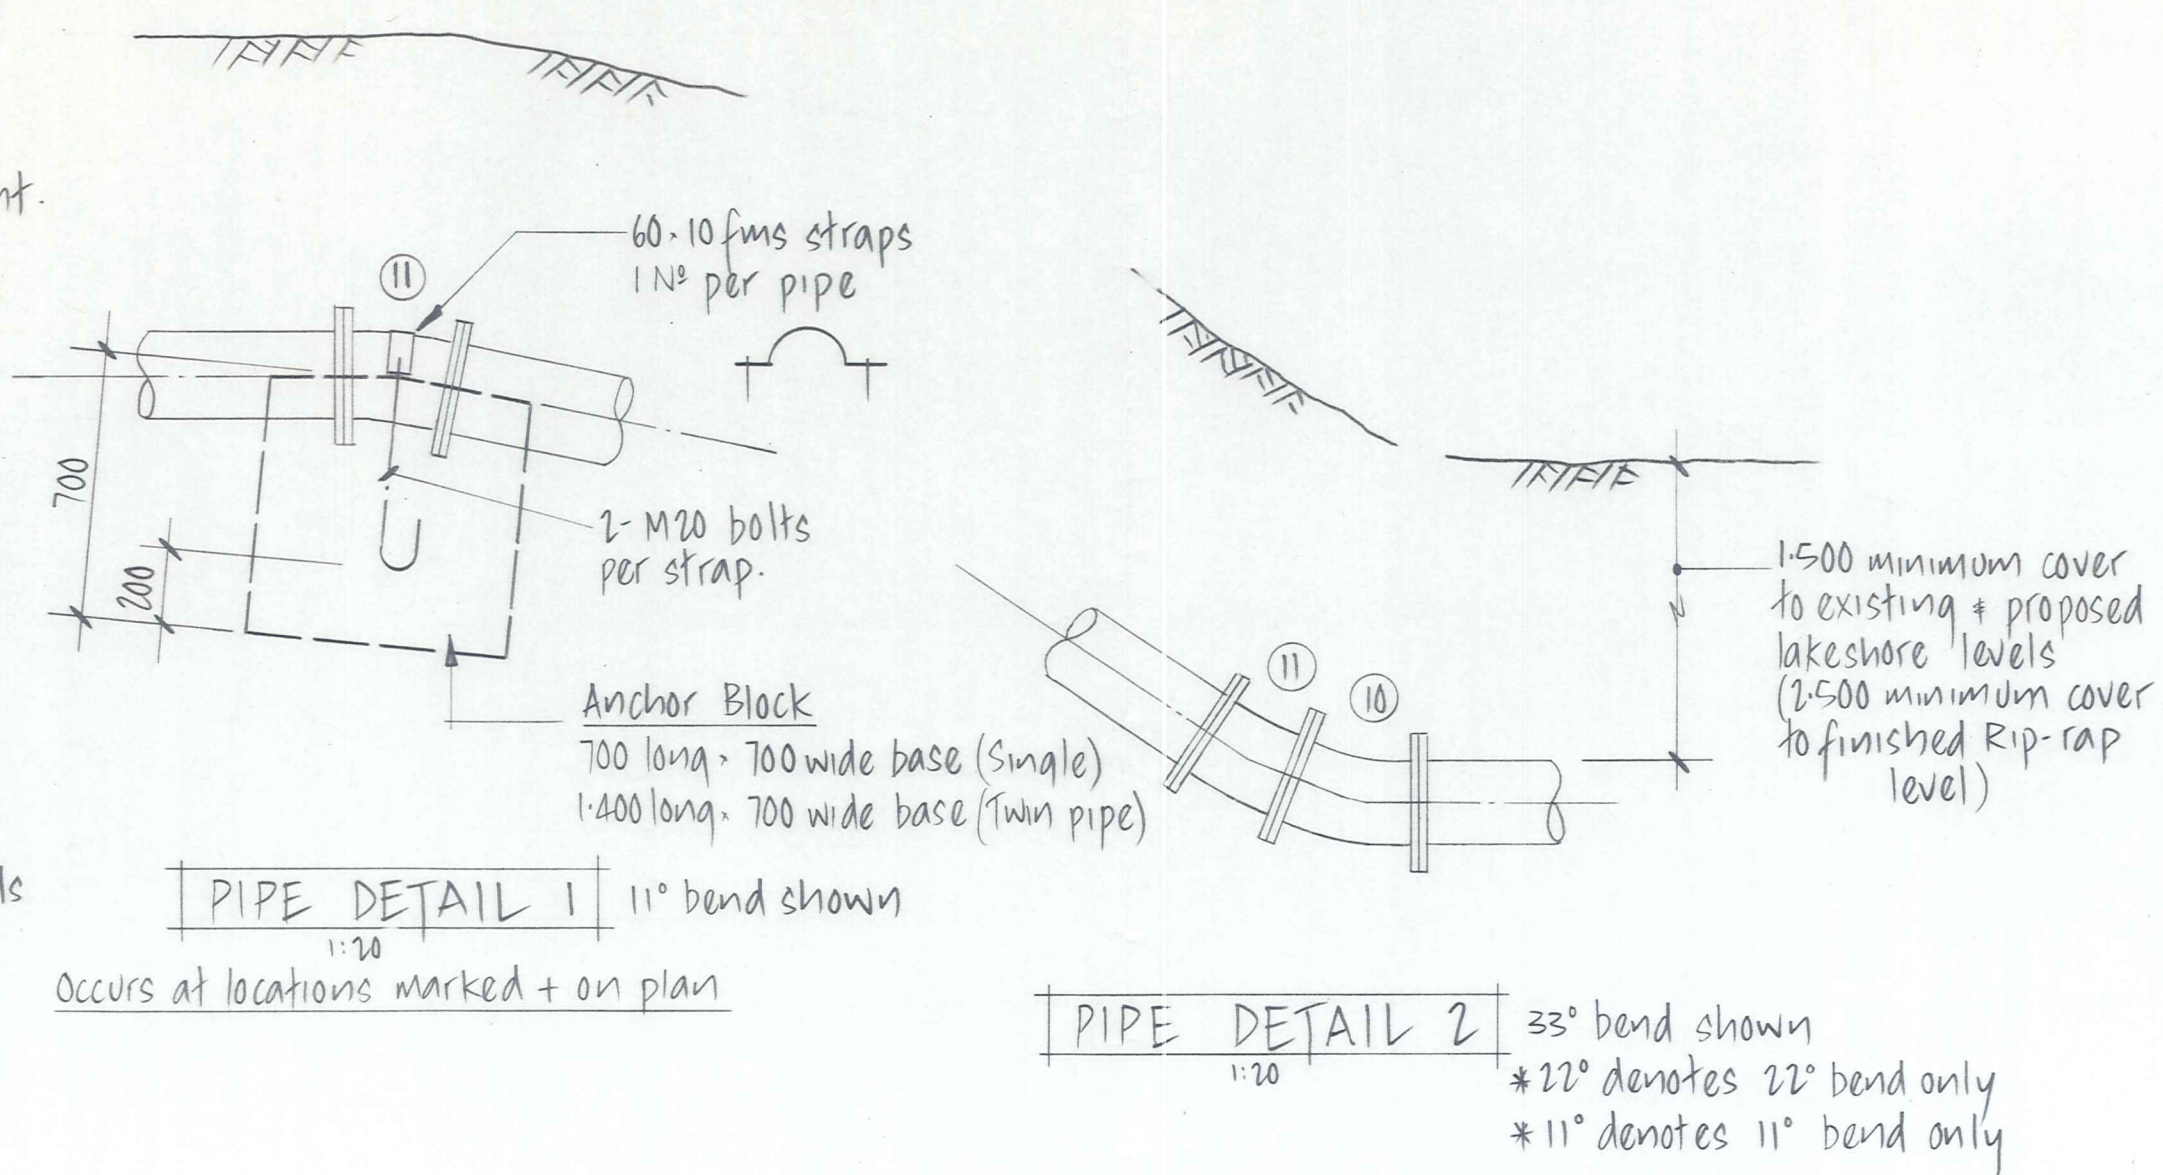 nt.
60×10 fms straps
1 Nº per pipe
11
700
200
2-M20 bolts
per strap.
Anchor Block
700 long × 700 wide base (Single)
1·400 long × 700 wide base (Twin pipe)
ls
PIPE DETAIL 1
11° bend shown
1:20
Occurs at locations marked + on plan
1·500 minimum cover
to existing & proposed
lakeshore levels
(2·500 minimum cover
to finished Rip-rap
level)
11
10
PIPE DETAIL 2
33° bend shown
1:20
*22° denotes 22° bend only
*11° denotes 11° bend only